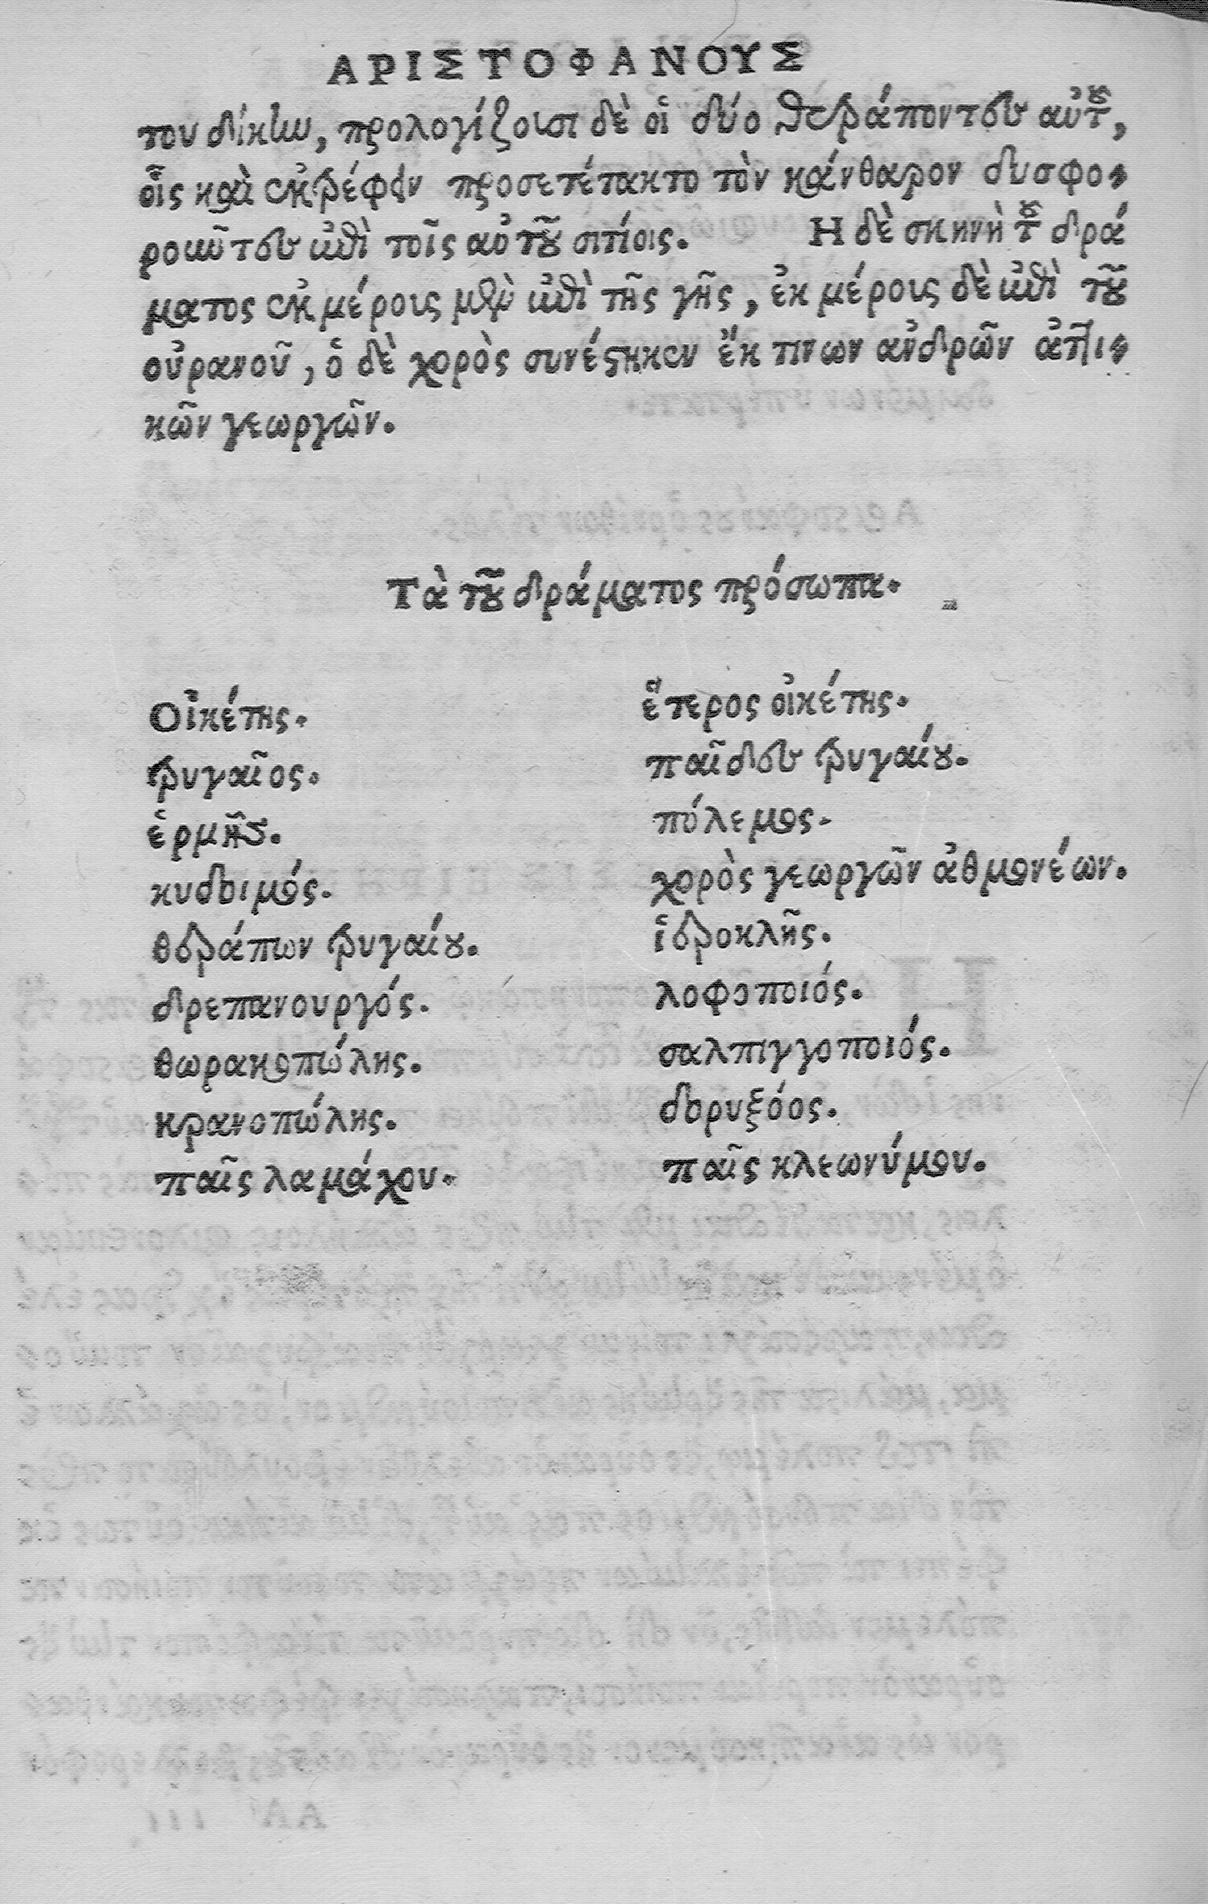 ΑΡΙΣΤΟΦΑΝΟΥΣ
του δίκην, προλογίζουσι δὲ οἱ δύο θεράποντες αὐτοῦ,
οἷς καὶ ἐκτρέφειν προσετέτακτο τὸν κάνθαρον δυσφο-
ροῦντες ἐπὶ τοῖς αὐτοῦ σιτίοις. Η δὲ σκηνὴ τοῦ δρά
ματος ἐκ μέρους μὲν ἐπὶ τῆς γῆς, ἐκ μέρους δὲ ἐπὶ τοῦ
οὐρανοῦ, ὁ δὲ χορὸς συνέστηκεν ἔκ τινων ἀνδρῶν ἀττι-
κῶν γεωργῶν.
Τὰ τοῦ δράματος πρόσωπα.
Οἰκέτης. ἕτερος οἰκέτης.
τρυγαῖος. παῖδες τρυγαίου.
ἑρμῆς. πόλεμος.
κυδοιμός. χορὸς γεωργῶν ἀθμονέων.
θεράπων τρυγαίου. ἱεροκλῆς.
δρεπανουργός. λοφοποιός.
θωρακοπώλης. σαλπιγγοποιός.
κρανοπώλης. δορυξόος.
παῖς λαμάχου. παῖς κλεωνύμου.